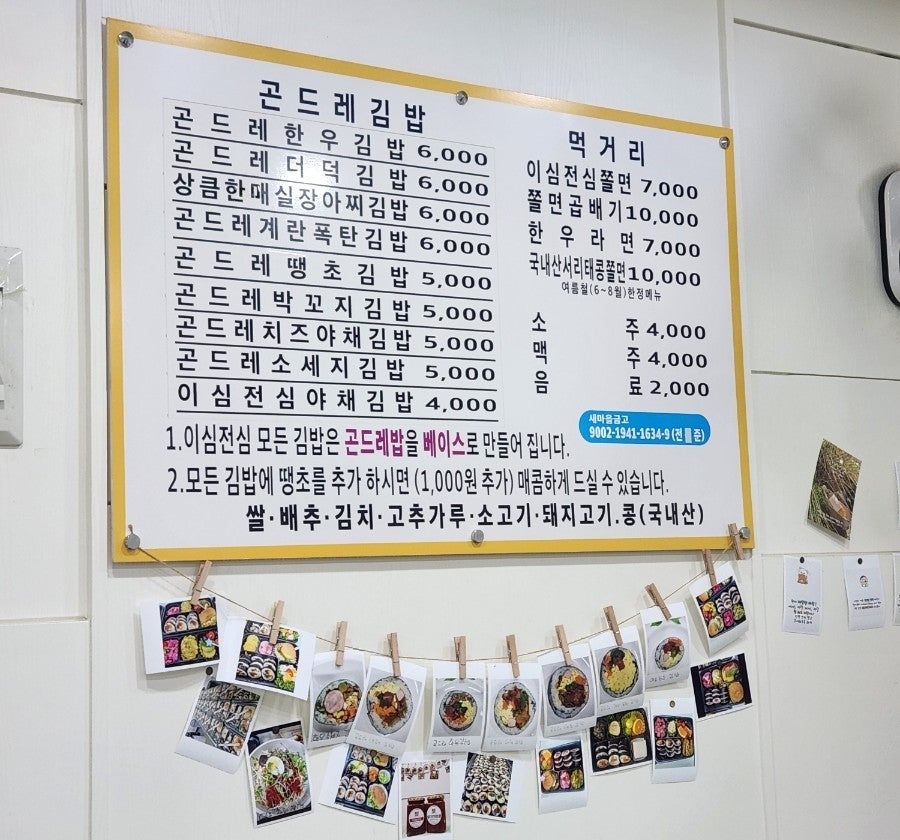 곤드레김밥
곤드레한우김밥 6,000
곤드레더덕김밥 6,000
상큼한매실장아찌김밥 6,000
곤드레계란폭탄김밥 6,000
곤드레땡초김밥 5,000
곤드레박꼬지김밥 5,000
곤드레치즈야채김밥 5,000
곤드레소세지김밥 5,000
이심전심야채김밥 4,000
먹거리
이심전심쫄면 7,000
쫄면곱배기 10,000
한우라면 7,000
국내산서리태콩쫄면 10,000
여름철(6~8월)한정메뉴
소주 4,000
맥주 4,000
음료 2,000
새마을금고
9002-1941-1634-9 (전 준)
1.이심전심 모든 김밥은 곤드레밥을 베이스로 만들어 집니다.
2.모든 김밥에 땡초를 추가 하시면 (1,000원 추가) 매콤하게 드실 수 있습니다.
쌀·배추·김치·고추가루·소고기·돼지고기.콩(국내산)